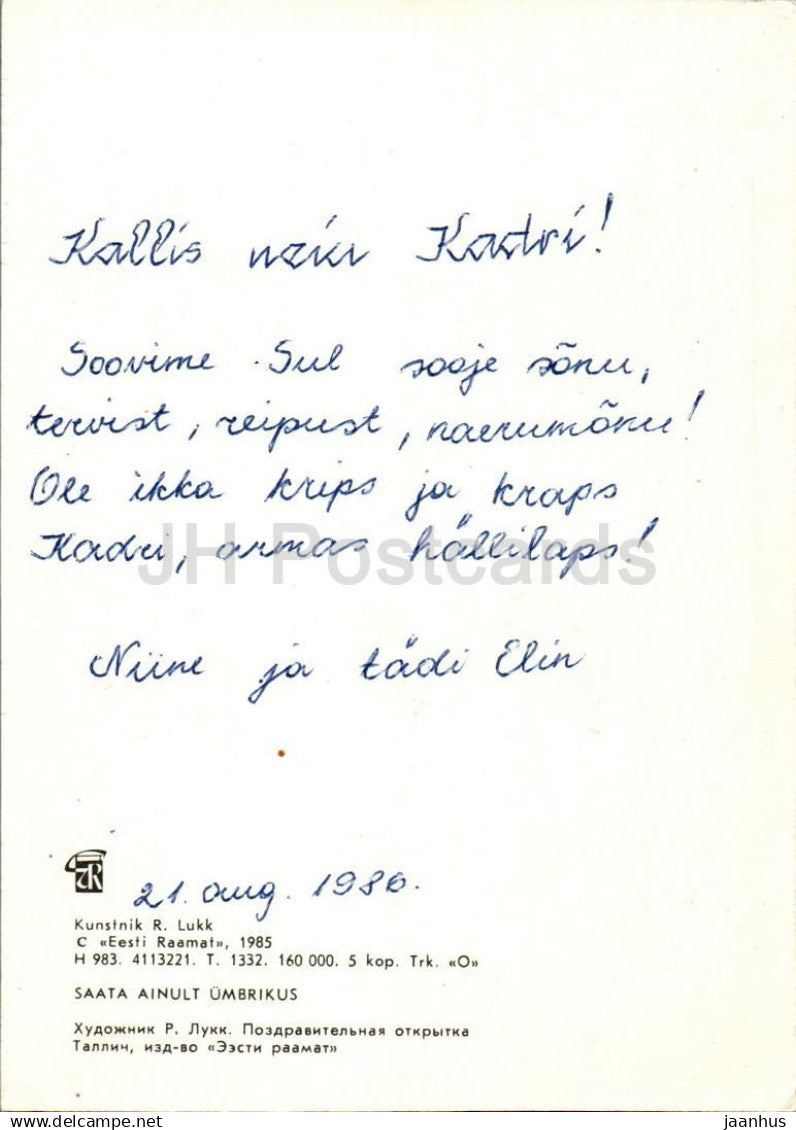 Kallis väike Kadri!
Soovime Sul sooje sõnu,
tervist, reipust, naerumõnu!
Ole ikka krips ja kraps
Kadri, armas hällilaps!
Niine ja tädi Elin
21. aug. 1986.
Kunstnik R. Lukk
C «Eesti Raamat», 1985
H 983. 4113221. T. 1332. 160 000. 5 kop. Trk. «O»
SAATA AINULT ÜMBRIKUS
Художник Р. Лукк. Поздравительная открытка
Таллин, изд-во «Ээсти раамат»
JH Postcards
jaanhus